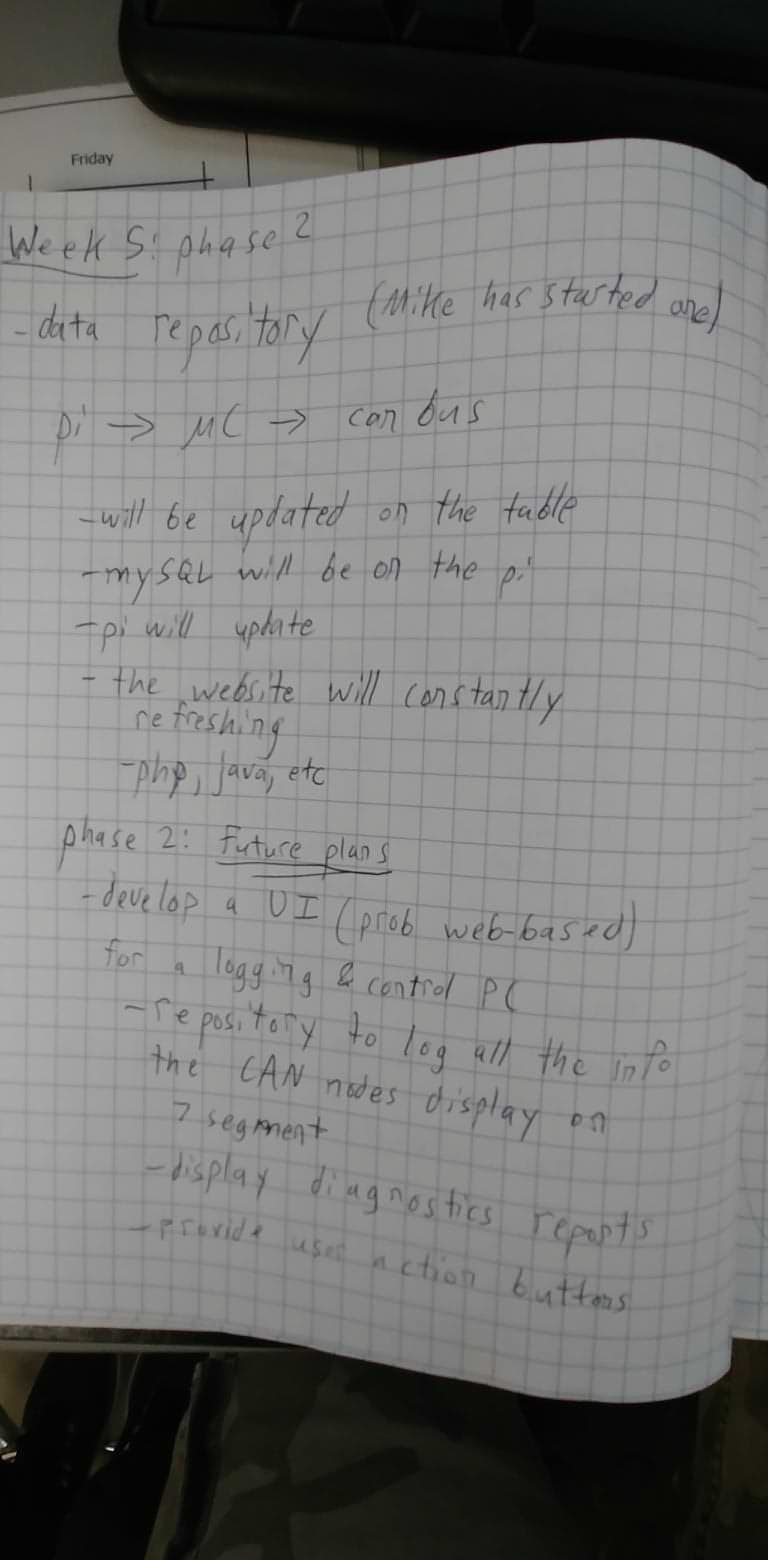 Friday
Week 5: phase 2
- data repository (Mike has started one)
pi → µC → can bus
- will be updated on the table
- mySQL will be on the pi
- pi will update
- the website will constantly
refreshing
- php, java, etc
phase 2: Future plans
- develop a UI (prob web-based)
for a logging & control PC
- repository to log all the info
the CAN nodes display on
7 segment
- display diagnostics reports
- provide user action buttons